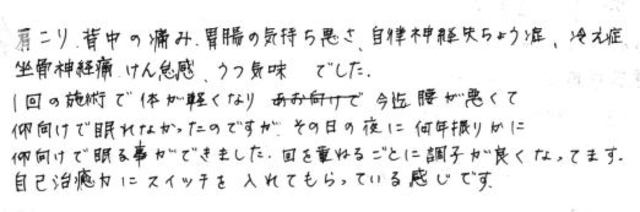 肩こり、背中の痛み、胃腸の気持ち悪さ、自律神経失ちょう症、冷え症
坐骨神経痛、けん怠感、うつ気味 でした。
1回の施術で体が軽くなり あお向けで 今迄 腰が悪くて
仰向けで眠れなかったのですが、その日の夜に 何年振りかに
仰向けで眠る事ができました。回を重ねるごとに調子が良くなってます。
自己治癒力にスイッチを 入れてもらっている感じです。